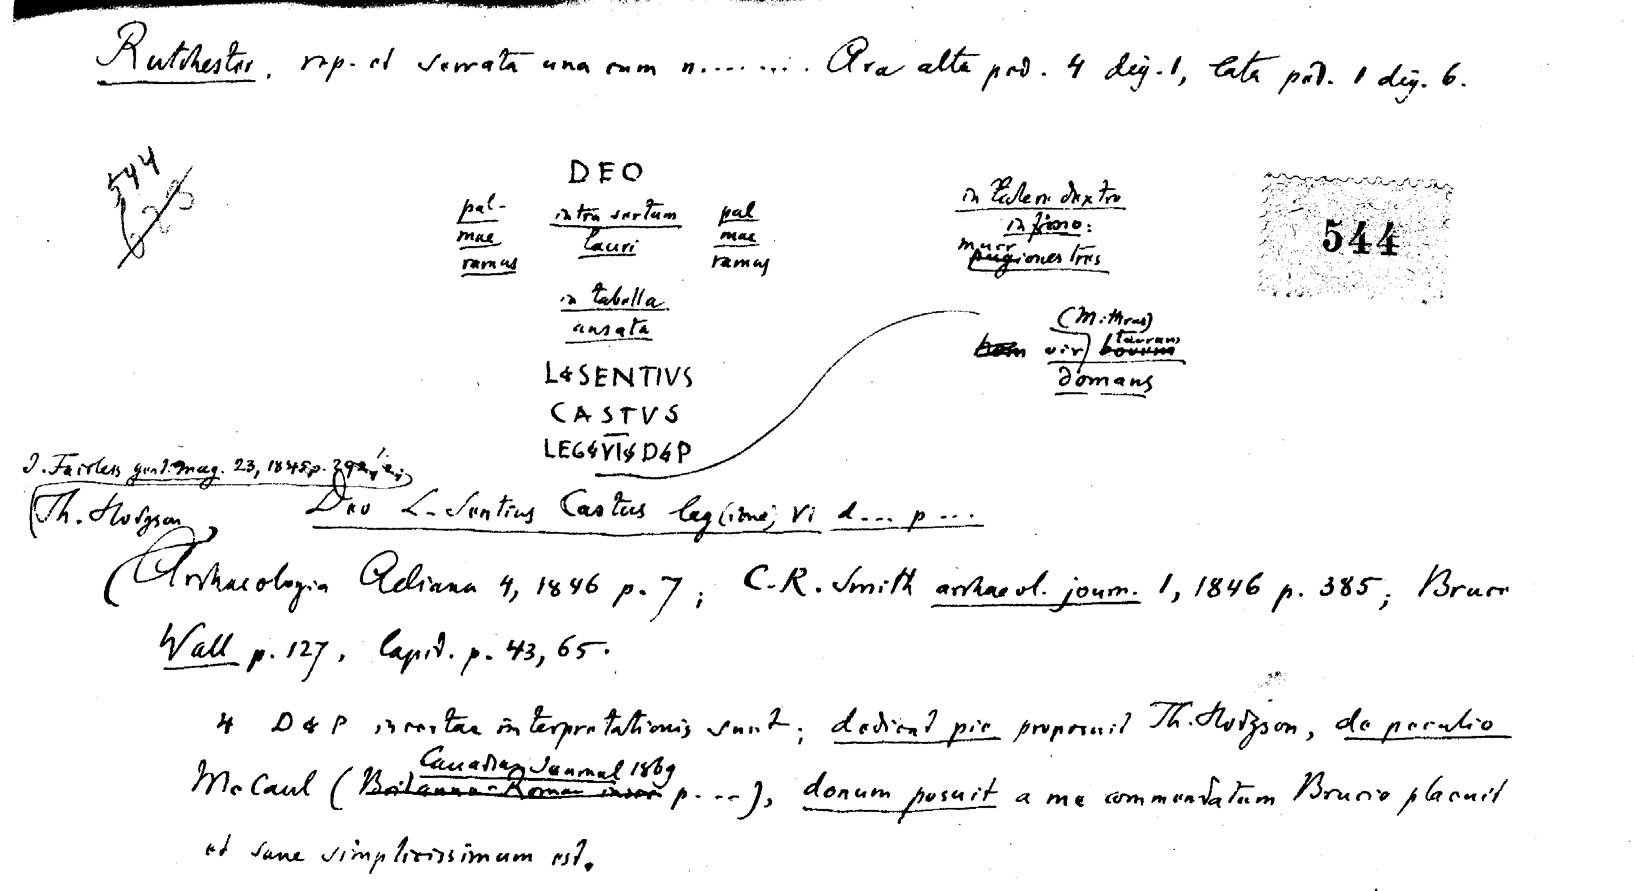 Rutchester, rep. et servata una cum n........ Ara alta ped. 4 dig. 1, lata ped. 1 dig. 6.
544
623
DEO
pal-
mae
ramus
intra sertum
lauri
pal
mae
ramus
in latere dextro
infimo:
pugiones tres
544
in tabella
ansata
(Mithras)
vir) taurum
domans
L SENTIVS
CASTVS
LEG VI D P
J. Fairless gent. mag. 23, 1845 p.
(Th. Hodgson,
Deo L. Sentius Castus leg(ione) VI d... p...
(Archaeologia Aeliana 4, 1846 p. 7; C. R. Smith archaeol. journ. 1, 1846 p. 385; Bruce
Wall p. 127, lapid. p. 43, 65.
4 D & P incertae interpretationis sunt; dedicat pie proposuit Th. Hodgson, de peculio
McCaul (Canadian Journal 1869 p. ...), donum posuit a me commendatum Brucio placuit
et sane simplicissimum est.